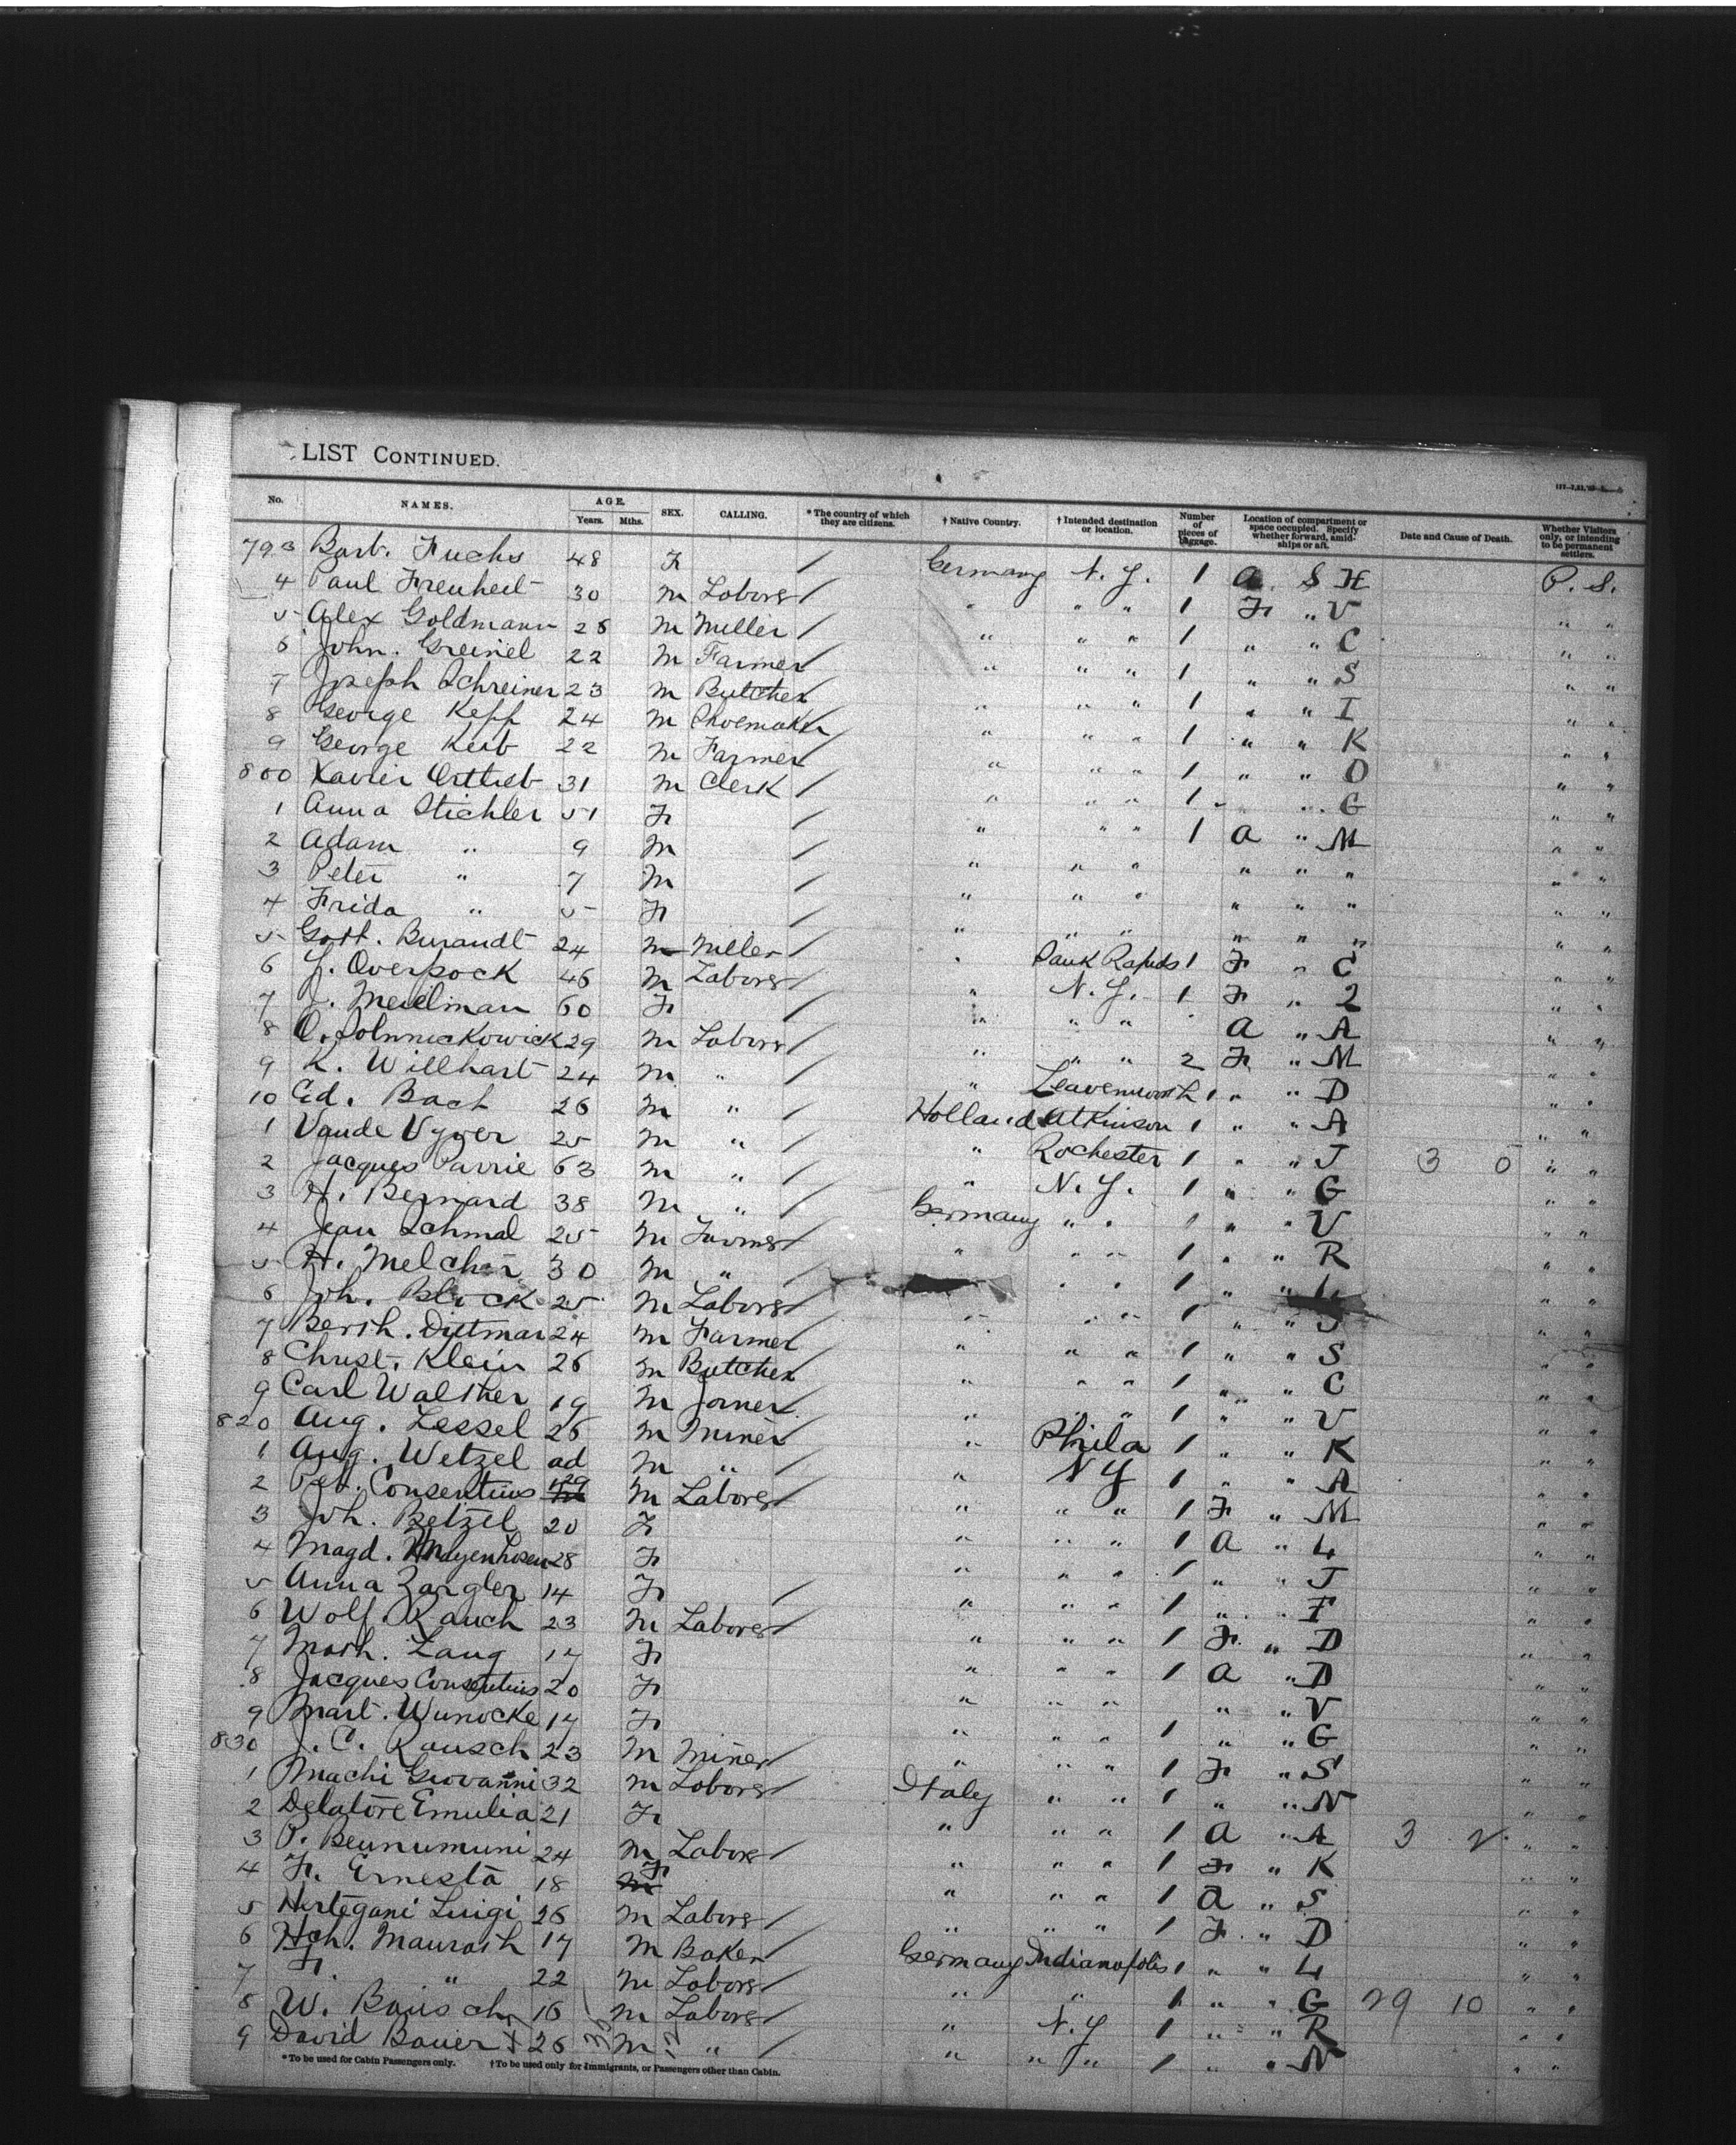 LIST CONTINUED.
No. NAMES. AGE. Years. Mths. SEX. CALLING. * The country of which they are citizens. † Native Country. † Intended destination or location. Number of pieces of luggage. Location of compartment or space occupied. Specify whether forward, amidships or aft. Date and Cause of Death. Whether Visitors only, or intending to be permanent settlers.
793 Barb. Fuchs 48 F / Germany N.Y. 1 A S H P. S.
4 Paul Freuheit 30 M Labors / " " " 1 F " V " "
5 Alex Goldmann 28 M Miller / " " " 1 " " C " "
6 John. Greinel 22 M Farmer / " " " 1 " " S " "
7 Joseph Schreiner 23 M Butcher / " " " 1 " " I " "
8 George Kepp 24 M Shoemaker / " " " 1 " " K " "
9 George Keib 22 M Farmer / " " " 1 " " O " "
800 Xavier Ortlieb 31 M Clerk / " " " 1 " " G " "
1 Anna Stichler 51 F / " " " 1 A " M " "
2 Adam " 9 M / " " " " " " " "
3 Peter " 7 M / " " " " " " " "
4 Frida " 5 F / " " " " " " " "
5 Gott. Burandt 24 M Miller / " Sauk Rapids 1 F " C " "
6 J. Overpock 46 M Labors / " N.Y. 1 F " 2 " "
7 J. Meielman 60 F / " " " A " A " "
8 O. 29 M Labors / " " " 2 F " M " "
9 K. Willhart 24 M " / " Leavenworth 1 " " D " "
10 Ed. Bach 26 M " / Holland Atkinson 1 " " A " "
1 Vande Vyver 25 M " / " Rochester 1 " " J 3 0 " "
2 Jacques Parrie 63 M " / " N.Y. 1 " " G " "
3 H. Bernard 38 M " / Germany " " 1 " " V " "
4 Jean Schmal 25 M Farmer / " " " 1 " " R " "
5 H. Melchior 30 M " / " " 1 " " L " "
6 Joh. Block 25 M Labors / " " " 1 " " J " "
7 Berth. Dittmar 24 M Farmer / " " " 1 " " S " "
8 Christ. Klein 26 M Butcher / " " " 1 " " C " "
9 Carl Walther 19 M Joiner / " " " 1 " " V " "
820 Aug. Lessel 26 M Miner / " Phila 1 " " K " "
1 Aug. Wetzel ad M " / " NY 1 " " A " "
2 Pet. Consentius 29 M Labors / " " " 1 F " M " "
3 Joh. Betzel 20 F " " " 1 A " L " "
4 Magd. 28 F " " " 1 " " J " "
5 Anna Zargler 14 F / " " " 1 " " F " "
6 Wolf. Rauch 23 M Labors / " " " 1 F " D " "
7 Math. Lang 17 F " " " 1 A " D " "
8 Jacques Consentius 20 F " " " " " V " "
9 Mart. Wunocke 17 F " " " 1 " " G " "
830 J. C. Rausch 23 M Miner / " " " 1 F " S " "
1 Machi Giovanni 32 M Labors / Italy " " 1 " " N " "
2 Delatore Emulia 21 F " " " 1 A " A 3 2 " "
3 P. Beunumuni 24 M Labors / " " " 1 F " K " "
4 Fr. Ernesta 18 F " " " 1 A " S " "
5 Hertegani Luigi 26 M Labors / " " " 1 F " D " "
6 Hch. Maurath 17 M Baker / Germany Indianapolis 1 " " L " "
7 Fr. " 22 M Labors / " " 1 " " G 29 10 " "
8 W. Bausch 16 M Labors / " N.Y 1 " " R " "
9 David Bauer X 26 M " / " " " 1 " " N " "
* To be used for Cabin Passengers only. † To be used only for Immigrants, or Passengers other than Cabin.